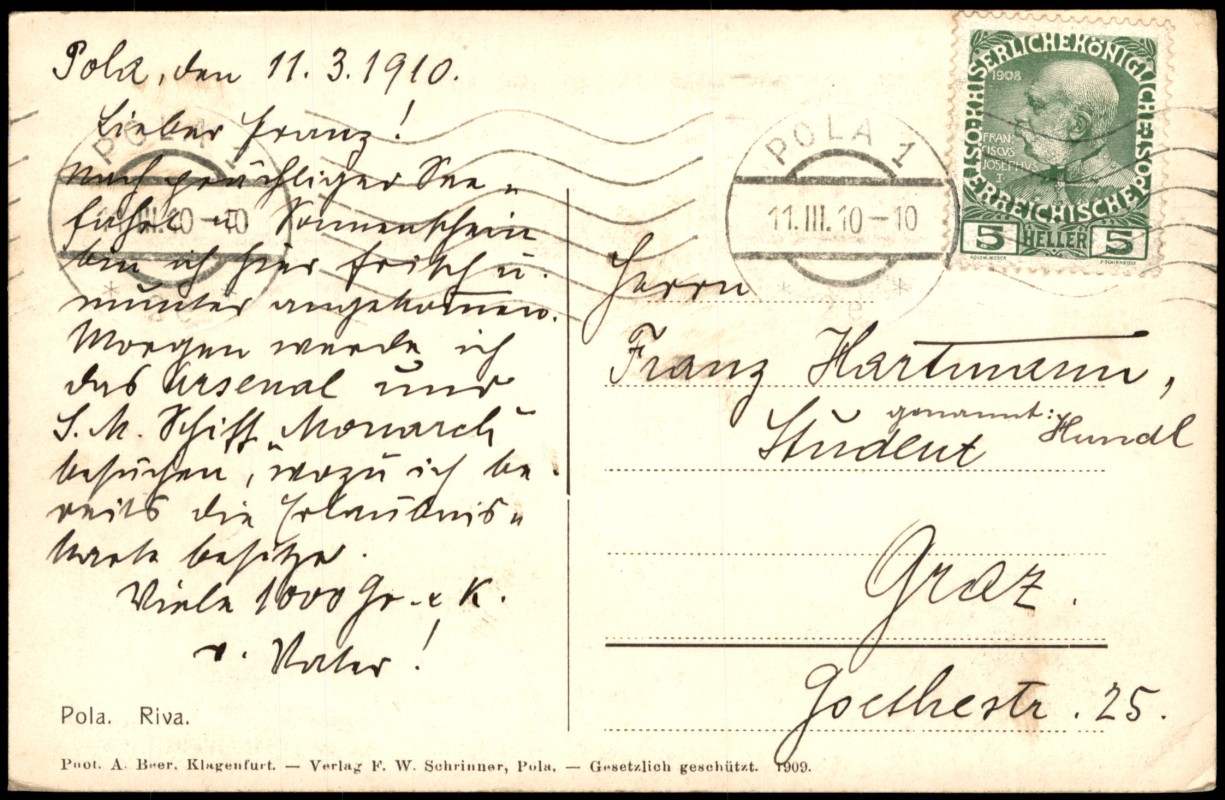 Pola, den 11.3.1910.
Lieber Franz!
Nach prächtiger See-
fahrt u Sonnenschein
bin ich hier frisch u.
munter angekommen.
Morgen werde ich
das Arsenal und
S. M. Schiff „Monarch“
besuchen, wozu ich be-
reits die Erlaubnis-
karte besitze.
Viele 1000 Gr. u K.
v. Vater!
Pola. Riva.
Phot. A. Beer, Klagenfurt. — Verlag F. W. Schrinner, Pola. — Gesetzlich geschützt. 1909.
POLA 1
III.10-10
POLA 1
11.III.10-10
2e
KAISERLICHE KÖNIGLICHE ÖSTERREICHISCHE POST
1908
FRAN
CISCVS
JOSEPHVS
I.
5 HELLER 5
Herrn
Franz Hartmann,
genannt: Hundl
Student
Graz.
Goethestr. 25.